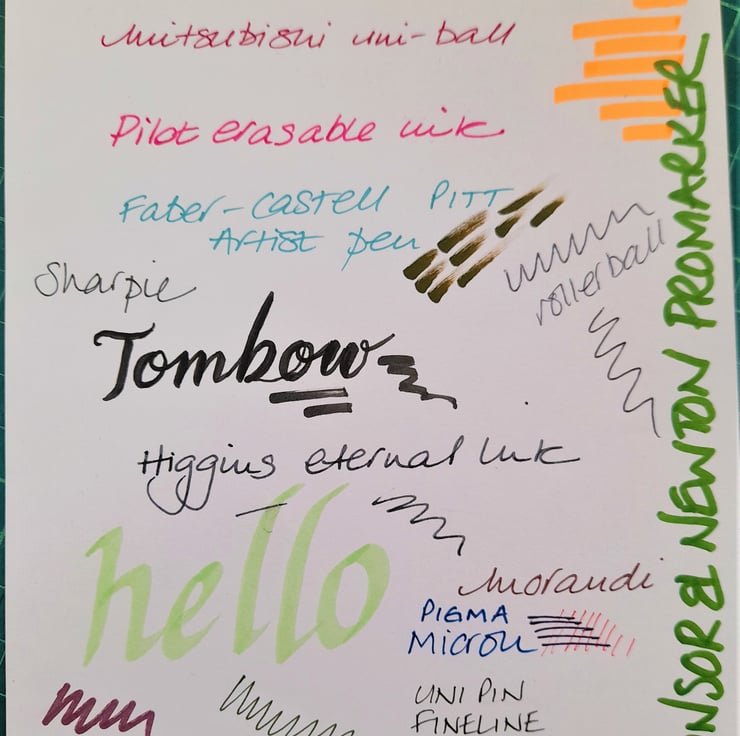 Mitsubishi uni-ball
Pilot erasable ink
Faber-Castell PITT
Artist pen
Sharpie
rollerball
Tombow
Higgins eternal ink
hello
Morandi
PIGMA
MICRON
UNI PIN
FINELINE
NSOR & NEWTON PROMARKER